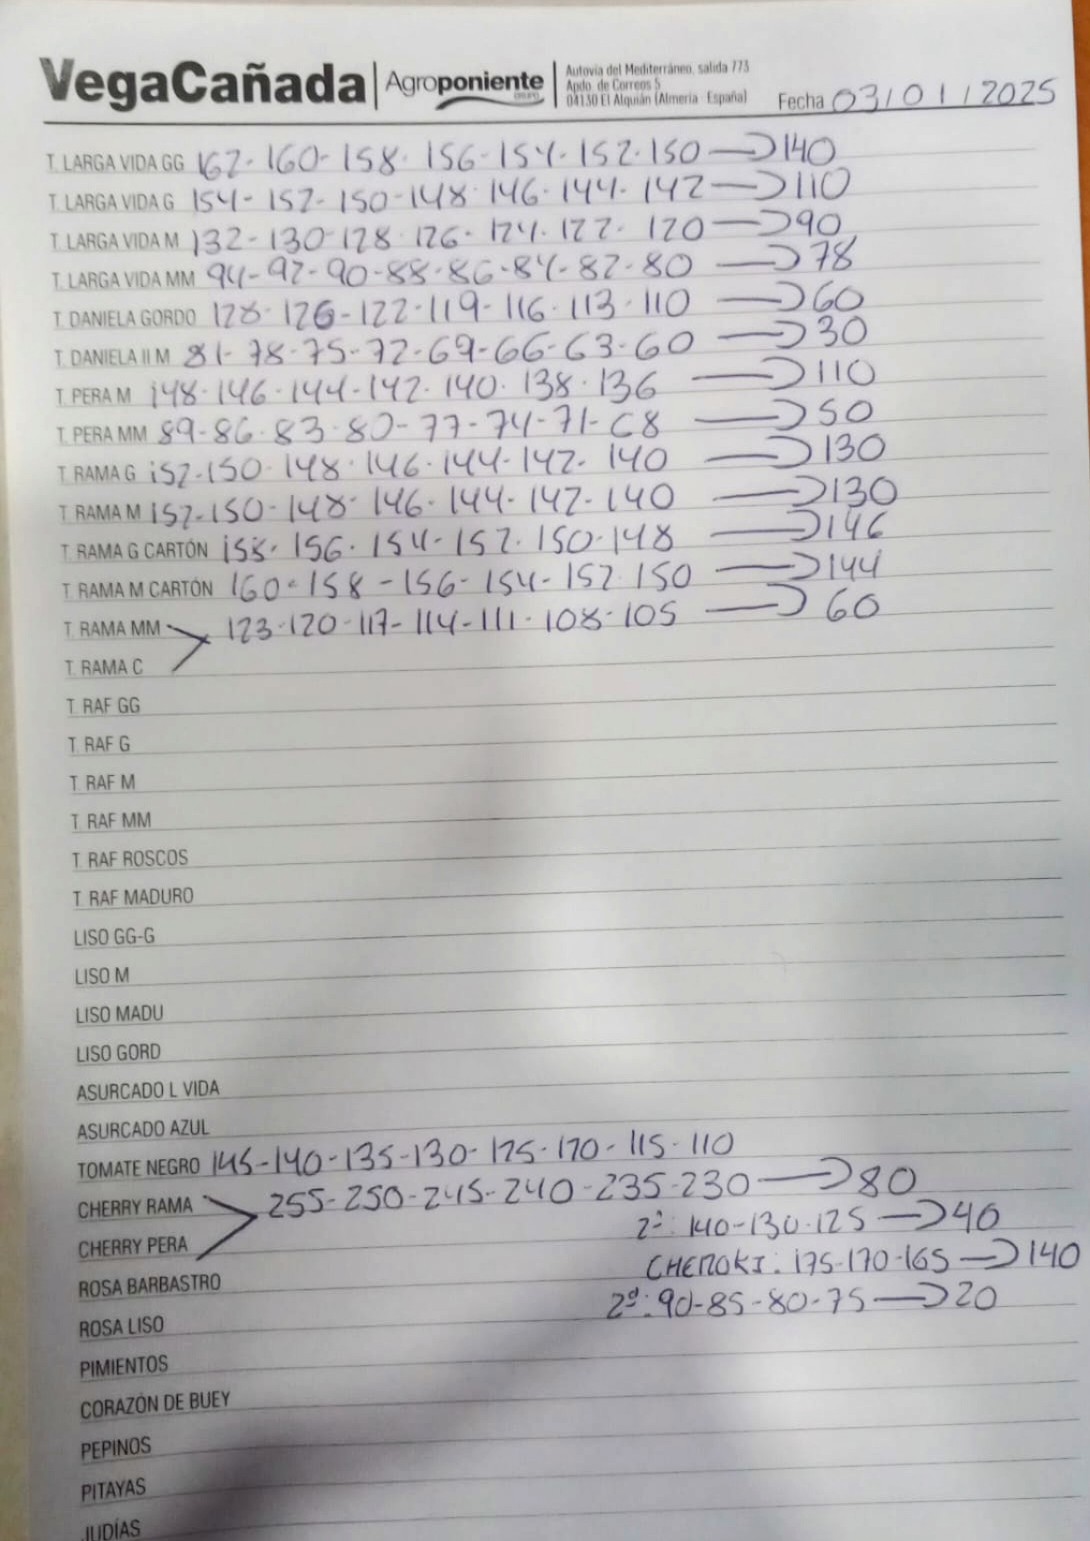 VegaCañada | Agroponiente GRUPO | Autovía del Mediterráneo, salida 773
Apdo. de Correos 5
04130 El Alquián (Almería - España)
Fecha 03/01/2025
T. LARGA VIDA GG 162-160-158-156-154-152-150 → 140
T. LARGA VIDA G 154-152-150-148-146-144-142 → 110
T. LARGA VIDA M 132-130-128-126-124-122-120 → 90
T. LARGA VIDA MM 94-92-90-88-86-84-82-80 → 78
T. DANIELA GORDO 128-126-122-119-116-113-110 → 60
T. DANIELA II M 81-78-75-72-69-66-63-60 → 30
T. PERA M 148-146-144-142-140-138-136 → 110
T. PERA MM 89-86-83-80-77-74-71-68 → 50
T. RAMA G 152-150-148-146-144-142-140 → 130
T. RAMA M 152-150-148-146-144-142-140 → 130
T. RAMA G CARTÓN 158-156-154-152-150-148 → 146
T. RAMA M CARTÓN 160-158-156-154-152-150 → 144
T. RAMA MM 123-120-117-114-111-108-105 → 60
T. RAMA C
T. RAF GG
T. RAF G
T. RAF M
T. RAF MM
T. RAF ROSCOS
T. RAF MADURO
LISO GG-G
LISO M
LISO MADU
LISO GORD
ASURCADO L VIDA
ASURCADO AZUL
TOMATE NEGRO 145-140-135-130-125-120-115-110
CHERRY RAMA 255-250-245-240-235-230 → 80
CHERRY PERA 2ª: 140-130-125 → 40
ROSA BARBASTRO CHEROKI: 175-170-165 → 140
ROSA LISO 2ª: 90-85-80-75 → 20
PIMIENTOS
CORAZÓN DE BUEY
PEPINOS
PITAYAS
JUDÍAS